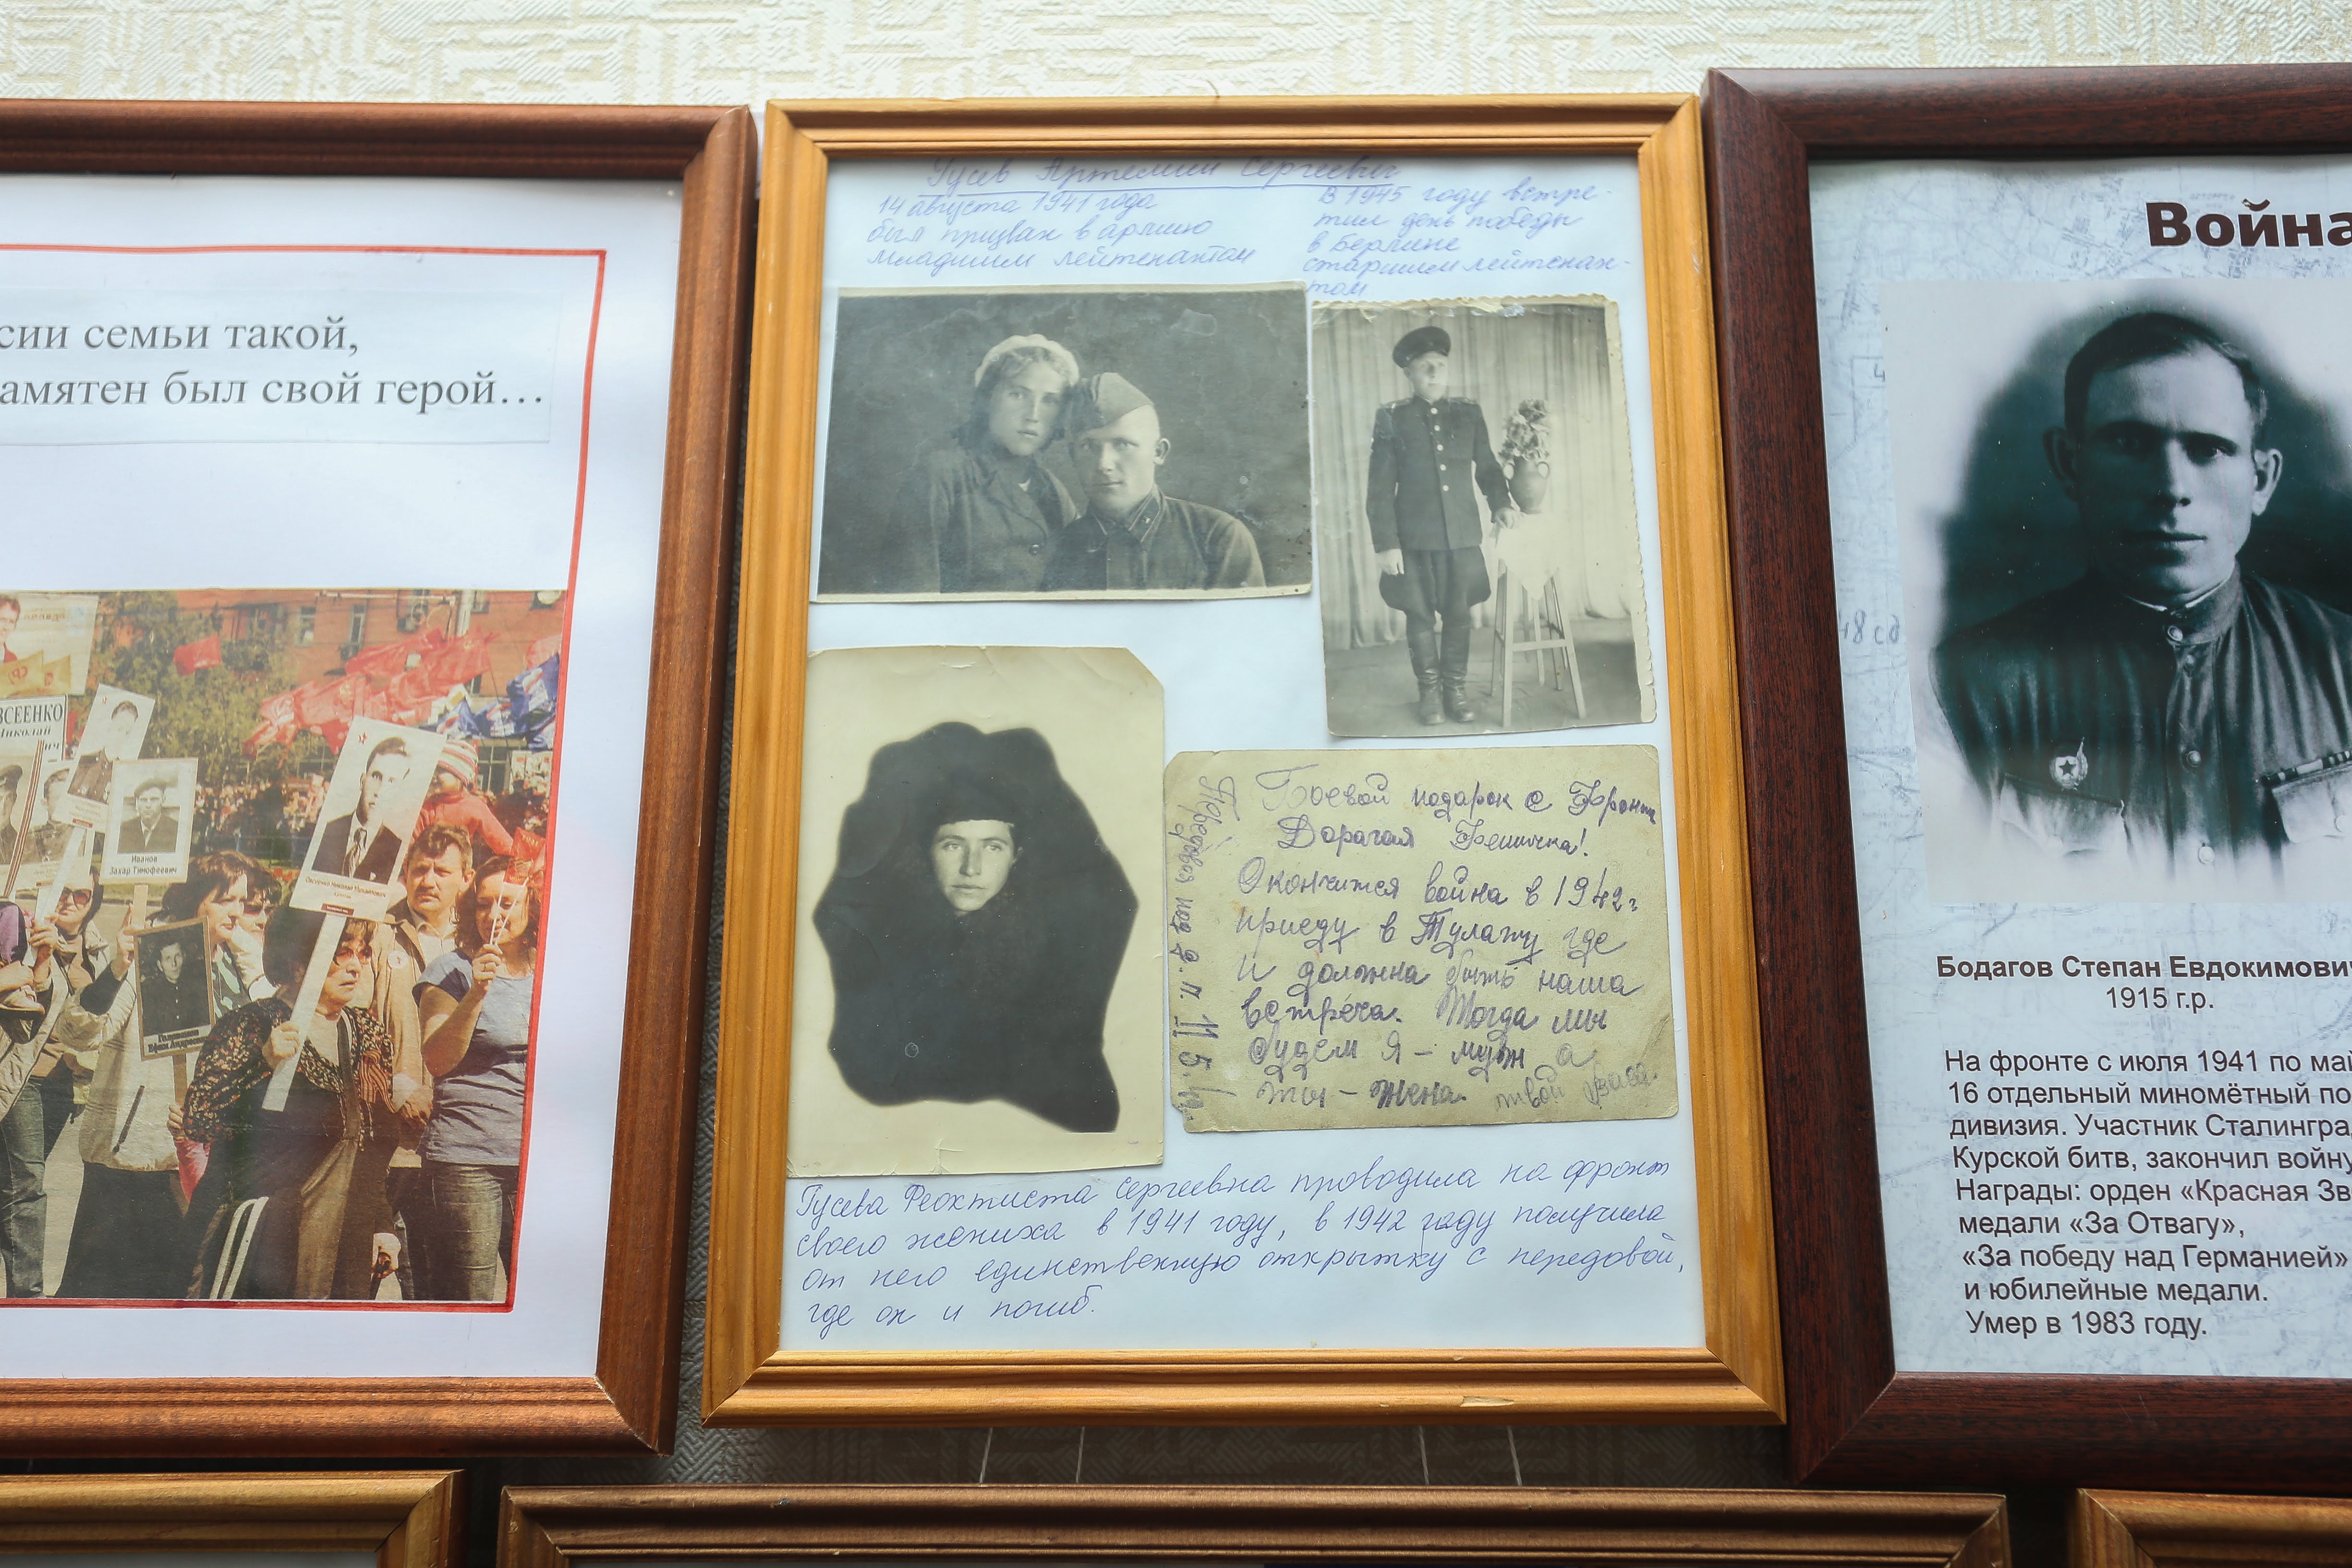 сии семьи такой,
амятен был свой герой...
ВСЕЕНКО
Николай
Иванов
Захар Тимофеевич
Гусев Артемий Сергеевич
14 августа 1941 года
был призван в армию
младшим лейтенантом
В 1945 году встре-
тил день победы
в Берлине
старшим лейтенан-
том
Боевой подарок с Фронта
Дорагая Фешичка!
Окончится война в 1942г
приеду в Тулату где
и должна быть наша
встреча. Тогда мы
будем я - муж а
ты - жена. твой
Гусева Феоктиста Сергеевна проводила на фронт
своего жениха в 1941 году, в 1942 году получила
от него единственную открытку с передовой,
где он и погиб.
Война
48 сд
Бодагов Степан Евдокимович
1915 г.р.
На фронте с июля 1941 по май
16 отдельный миномётный по
дивизия. Участник Сталингра
Курской битв, закончил войну
Награды: орден «Красная Зв
медали «За Отвагу»,
«За победу над Германией»
и юбилейные медали.
Умер в 1983 году.